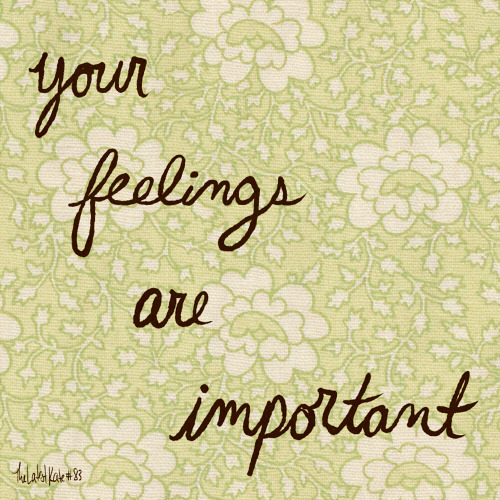 your
feelings
are
important
TheLatestKate #83